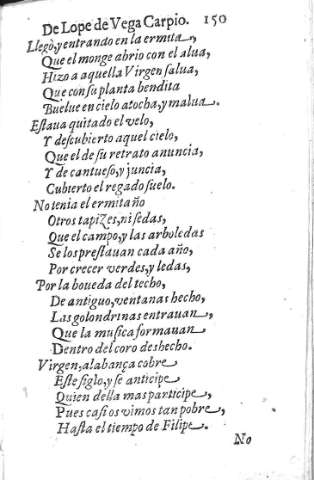 De Lope de Vega Carpio. 150
Llegò, y entrando en la ermita,
Que el monge abrio con el alua,
Hizo a aquella Virgen salua,
Que con su planta bendita
Buelue en cielo atocha, y malua.
Estaua quitado el velo,
Y descubierto aquel cielo,
Que el de su retrato anuncia,
Y de cantuesso, y juncia,
Cubierto el regado suelo.
No tenia el ermitaño
Otros tapizes, ni sedas,
Que el campo, y las arboledas
Se los prestauan cada año,
Por crecer verdes, y ledas,
Por la boueda del techo,
De antiguo, ventanas hecho,
Las golondrinas entrauan,
Que la musica formauan
Dentro del coro deshecho.
Virgen, alabança cobre
Este siglo, y se anticipe
Quien della mas participe,
Pues casi os vimos tan pobre,
Hasta el tiempo de Filipe.
No